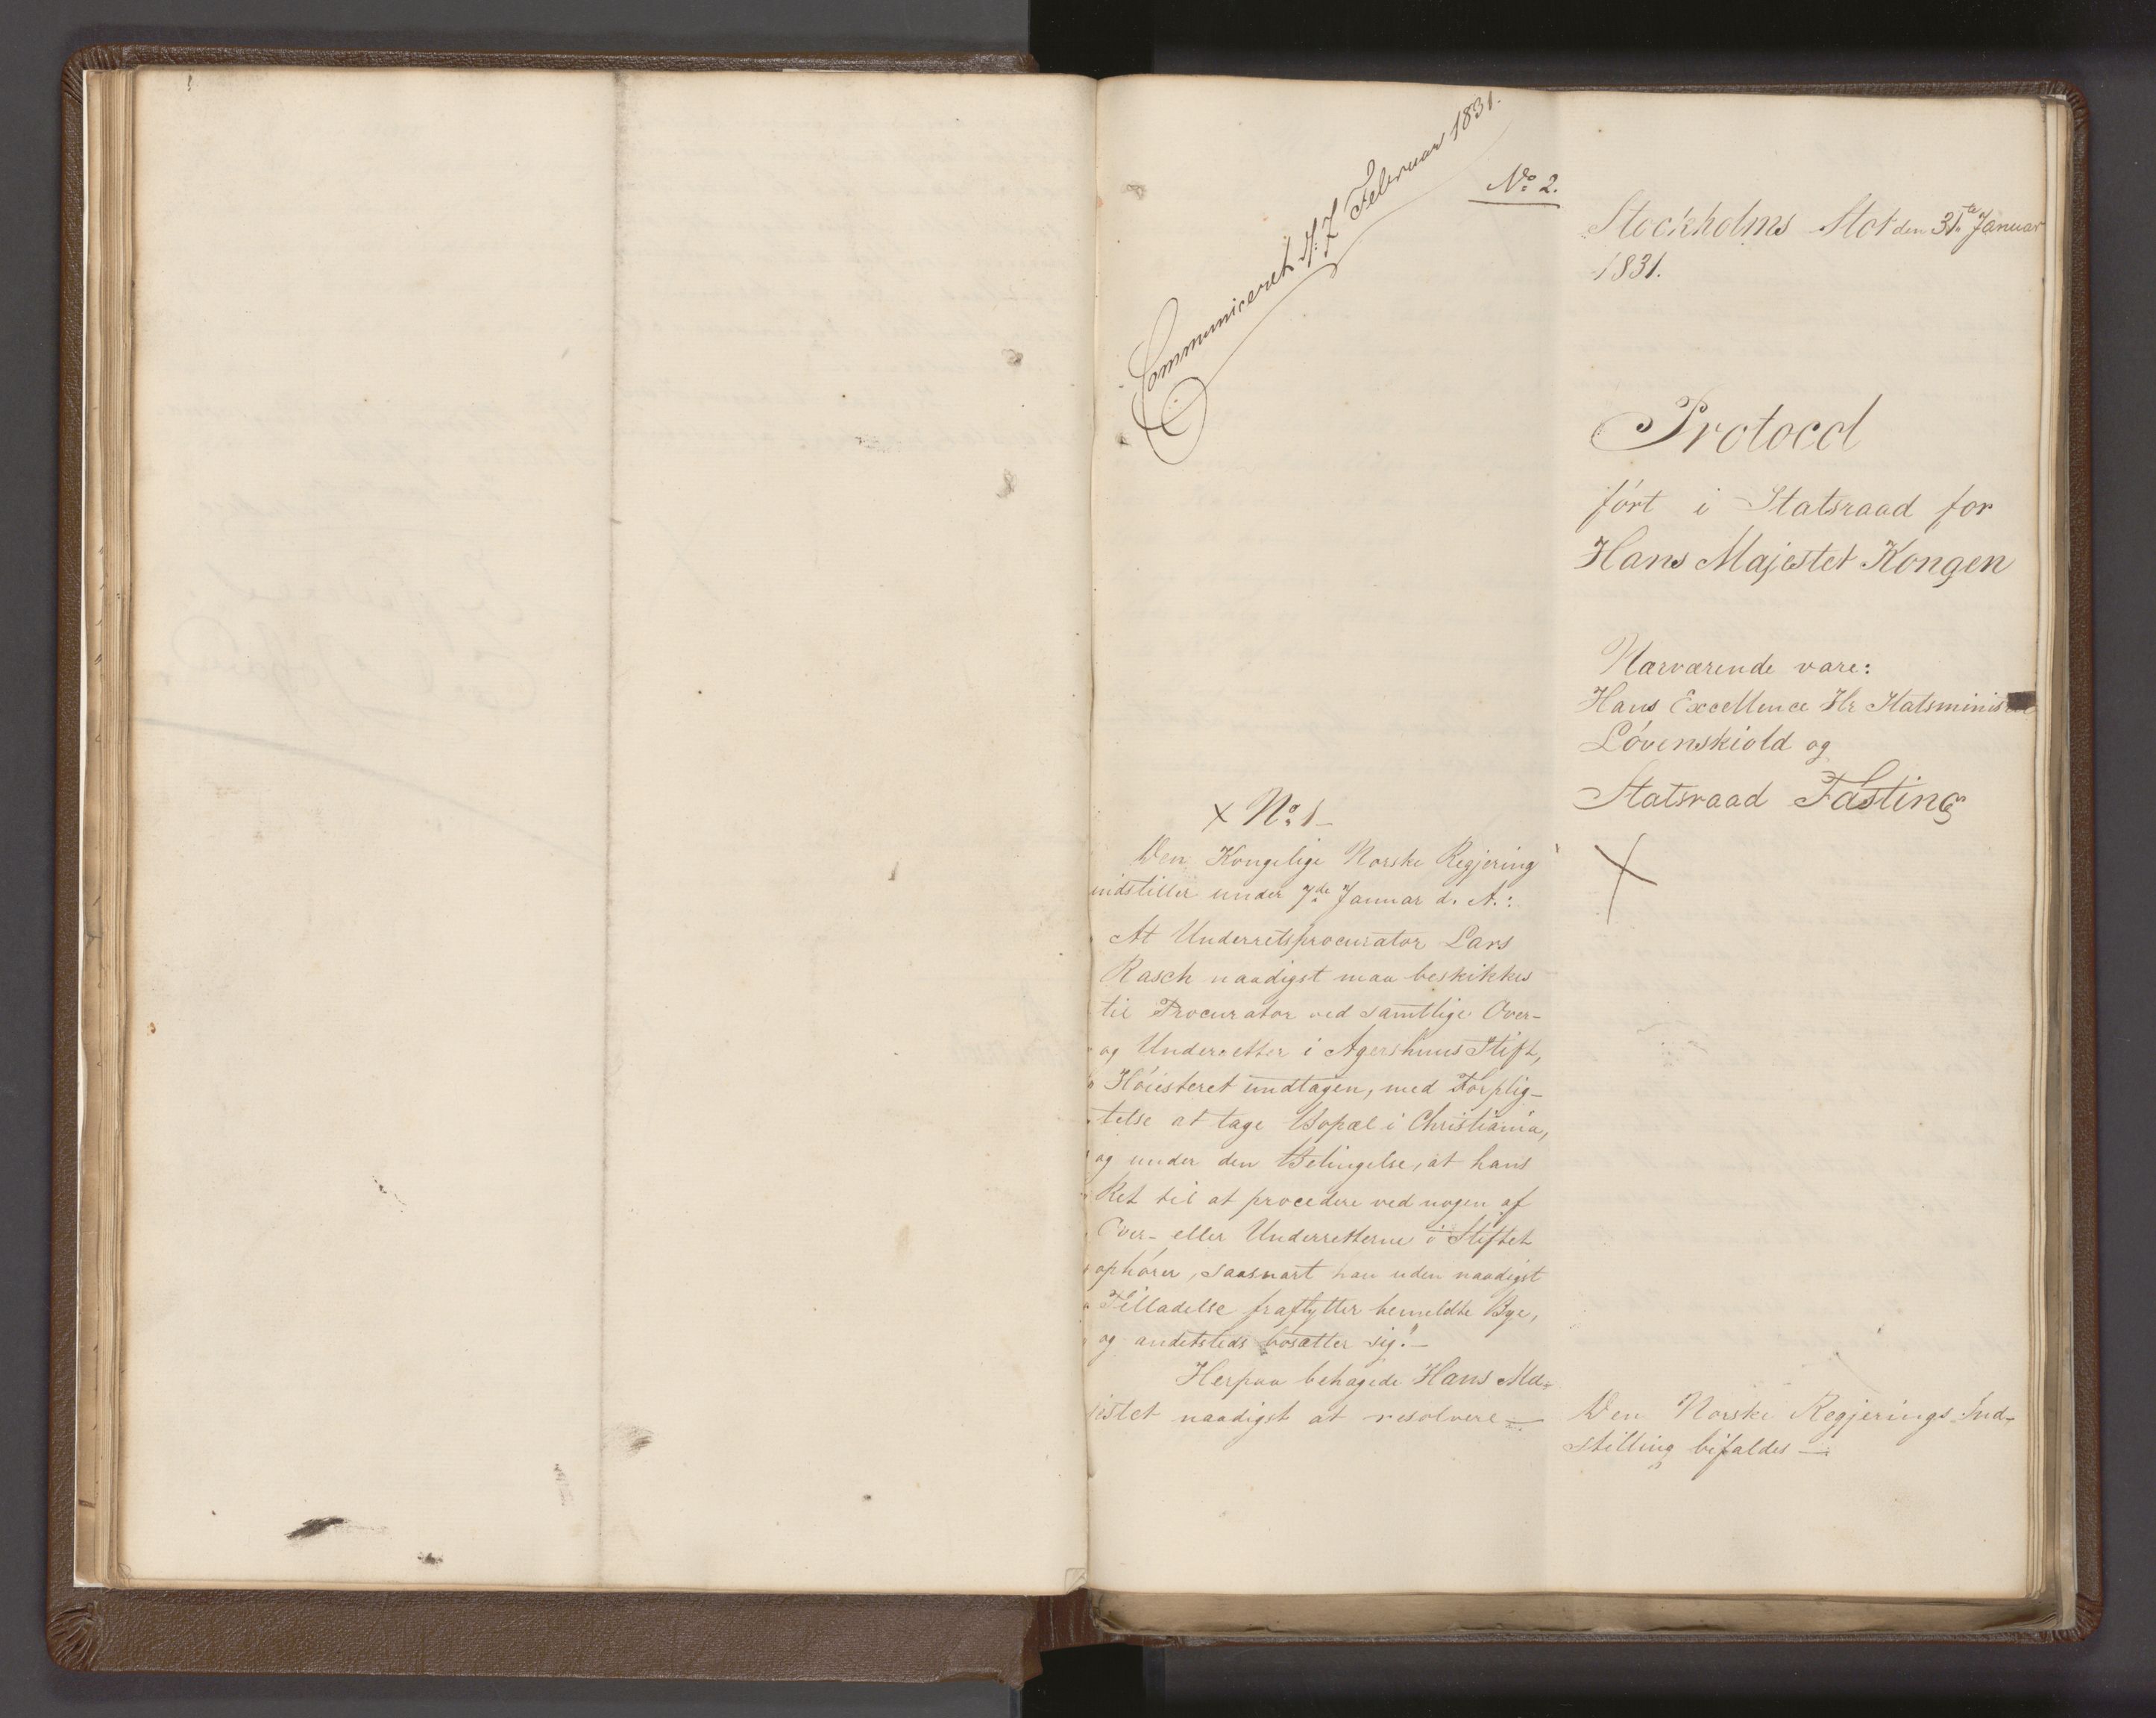 Communiceret d: 7 Februar 1831.
No 2.
Stockholms Slot den 31te Januar
1831.
Protocol
fört i Statsraad for
Hans Majestet Kongen
Nærværende vare:
Hans Excellence Hr Statsminister
Lövenskiold og
Statsraad Fasting
x No 1
Den Kongelige Norske Regjering
indstiller under 7de Januar d. A.:
At Underretsprocurator Lars
Rasch naadigst maa beskikkes
til Procurator ved samtlige Over-
og Underretter i Agershuus Stift,
Höiesteret undtagen, med Forplig-
telse at tage Bopæl i Christiania,
og under den Betingelse, at hans
Ret til at procedere ved nogen af
Over- eller Underretterne i Stiftet
ophörer, saasnart han uden naadigst
Tilladelse fraflytter bemeldte Bye,
og andetsteds bosætter sig." –
Herpaa behagede Hans Ma-
jestet naadigst at resolvere –
x
Den Norske Regjerings Ind-
stilling bifaldes –